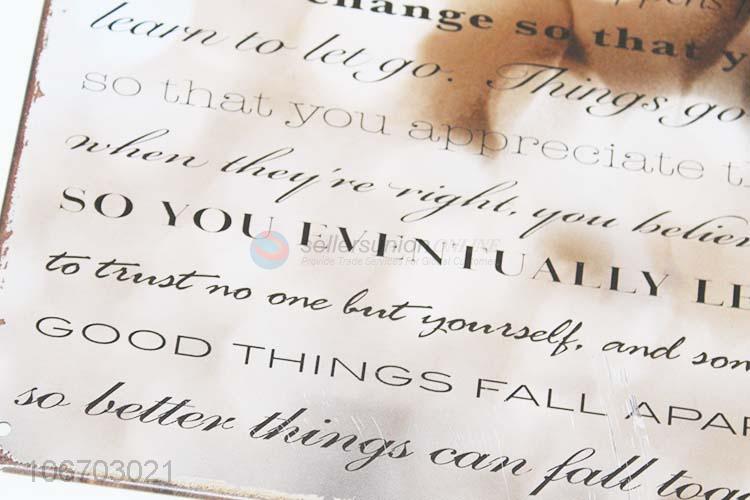 change so that y
learn to let go. Things go
so that you appreciate t
when they're right, you believ
SO YOU EVENTUALLY LE
to trust no one but yourself, and som
GOOD THINGS FALL APAR
so better things can fall toge
sellersunion ONLINE
Provide Trade Services For Global Customers
106703021